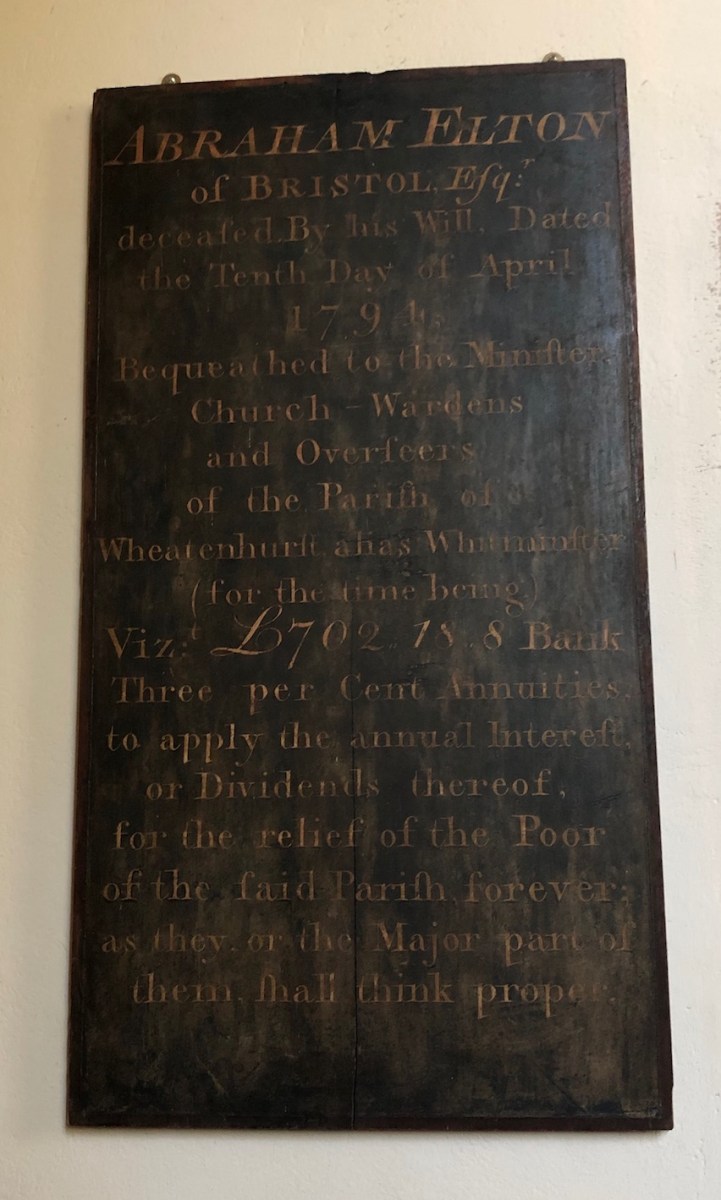 ABRAHAM ELTON
of BRISTOL, Eſqr.
deceaſed, By his Will, Dated
the Tenth Day of April
1794,
Bequeathed to the Miniſter,
Church-Wardens
and Overſeers
of the Pariſh of
Wheatenhurſt, alias Whitminſter
(for the time being)
Viz:t £702,,18,,8 Bank
Three per Cent Annuities,
to apply the annual Intereſt,
or Dividends thereof,
for the relief of the Poor
of the ſaid Pariſh, forever;
as they, or the Major part of
them, ſhall think proper.